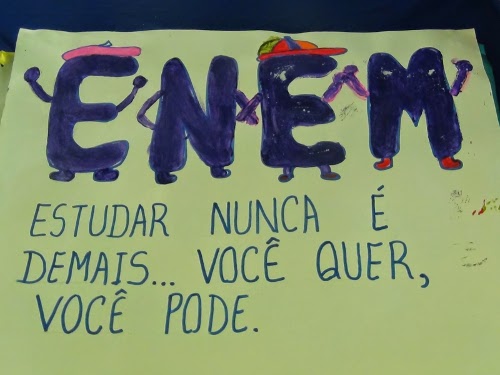 ENEM
ESTUDAR NUNCA É
DEMAIS... VOCÊ QUER,
VOCÊ PODE.